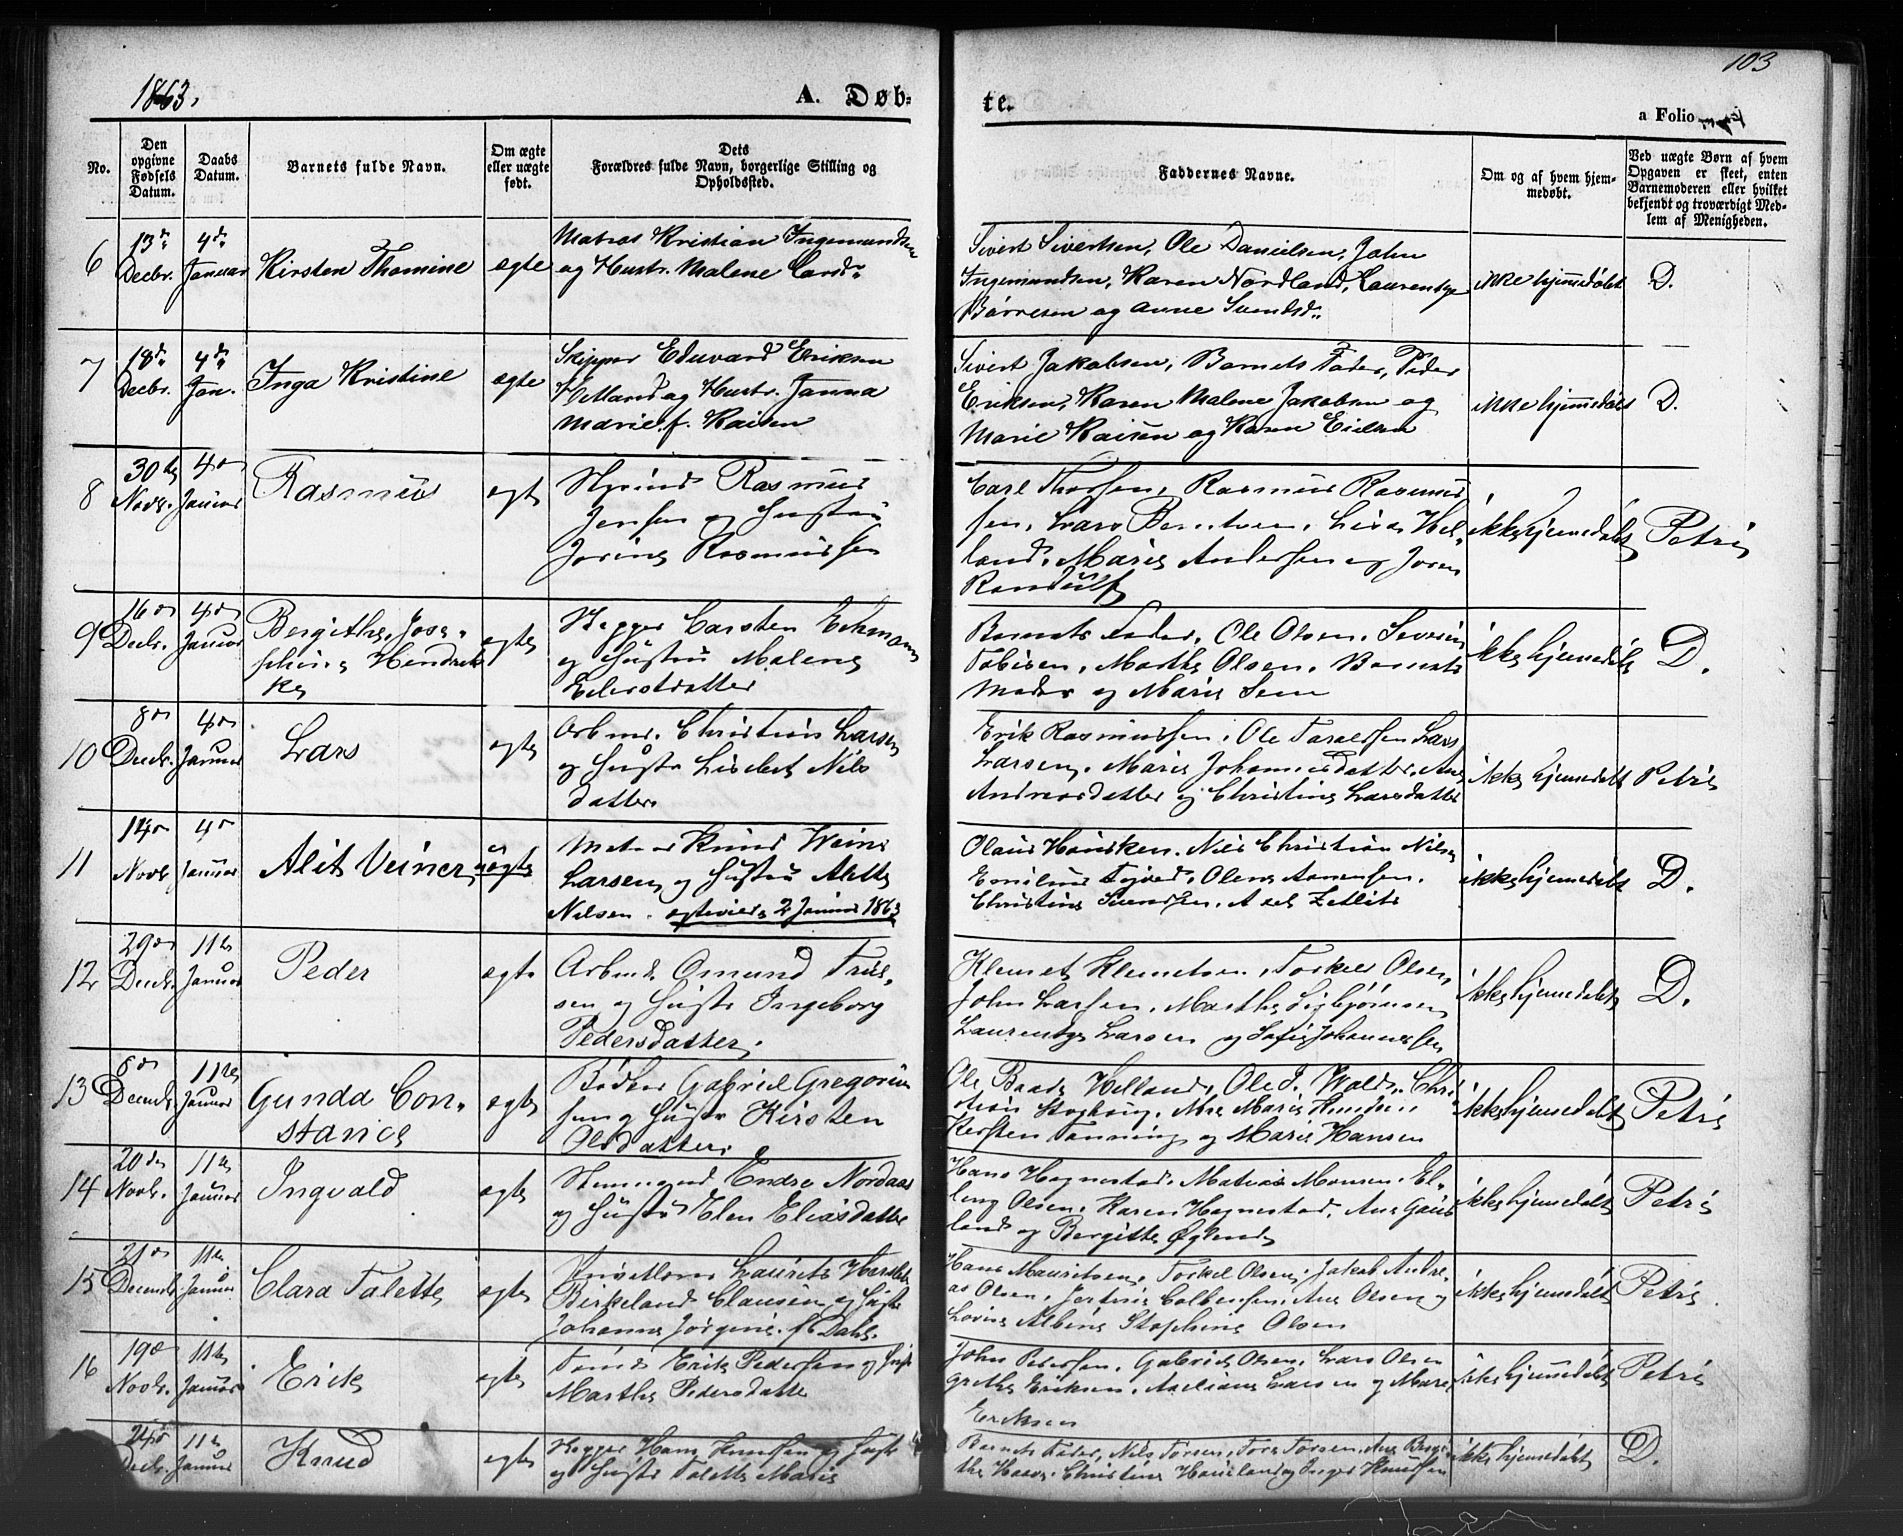 103
1863.
A. Døb-
te.
a Folio
No.
Den opgivne Fødsels Datum.
Daabs Datum.
Barnets fulde Navn.
Om ægte eller uægte født.
Dets Forældres fulde Navn, borgerlige Stilling og Opholdssted.
Faddernes Navne.
Om og af hvem hjemmedøbt.
Ved uægte Børn af hvem Opgaven er skeet, enten Barnemoderen eller hvilket bekjendt og troværdigt Medlem af Menigheden.
6
13de Decbr.
4de Januar
Kirsten Thomine
ægte
Matros Kristian Ingemundsen
og Hustr. Malene Larsd.
Sivert Sivertsen, Ole Danielsen, John
Ingemundsen, Karen Nordland, Laurentze
Børresen og Anne Svendsd.
ikke hjemmedøbt
D.
7
18de Decbr.
4de Jan.
Inga Kristine
ægte
Skipper Eduvard Eriksen
Hetland og Hustr. Janna
Marie f. Kaisen
Sivert Jakobsen, Barnets Fader, Peder
Eriksen, Karen Malene Jakobsen og
Marie Kaisen og Karen
ikke hjemmedøbt
D.
8
30te Novbr.
4de Januar
Rasmus
ægte
Rasmus
Jensen og Hustru
Jorine Rasmussen
Carl Thorsen, Rasmus Rasmus-
sen, Lars Berntsen, Lisa Hel-
land, Marie Andersen og Joren
Randulf
ikke hjemmedøbt
Petri
9
16de Decbr.
4de Januar
Bergithe Jose-
phine Hendrik-
ke
ægte
Carsten Echmann
og Hustru Malene
Eilertsdatter
Barnets Fader, Ole Olsen, Severin
Tobisen, Marthe Olsen, Barnets
Moder og Marie Sem
ikke hjemmedøbt
D.
10
8de Decbr.
4de Januar
Lars
ægte
Arbmd. Christian Larsen
og Hustr Lisebet Nils
datter
Erik Rasmussen, Ole Taraldsen Lars
Larsen, Marie Johannesdatter, Ane
Andreasdatter og Christine Larsdatter
ikke hjemmedøbt
Petri
11
14de Novbr.
4de Januar
Alit Veiner
uægte
Matros Knud Weine
Larsen og Hustru Alette
Nilsen. ægteviet 2 Januar 1863
Olaus Hausken, Nils Christian Nilsen
Emilius Olene Aanensen,
Christine Svendsen, Axel Zetlitz
ikke hjemmedøbt
D.
12
29de Decbr.
11te Januar
Peder
ægte
Arbmd. Omund Truls-
sen og Hustr Ingeborg
Pedersdatter
Klemet Klemetsen, Torkel Olsen,
John Larsen, Marthe Sigbjørnsen
Laurentze Larsen og Sofie Johannessen
ikke hjemmedøbt
D.
13
8de Decembr
11te Januar
Gunda Con-
stance
ægte
Bødker Gabriel Gregorius-
sen og Hustr Kirsten
Olsdatter
Ole Helland, Ole J. Wold, Chri-
stian Marie Knudsen
Kirsten Tanning og Marie Hansen
ikke hjemmedøbt
Petri
14
20de Novbr.
11te Januar
Ingvald
ægte
Endre Nordaas
og Hustru Elen Eliasdatter
Hans Hognestad, Matias Monsen, El-
ling Olsen, Karen Hognestad, Ane Gaus-
land og Bergitte Øglend
ikke hjemmedøbt
Petri
15
21de Decembr
11te Januar
Clara Talette
ægte
Laurits Hersleb
Birkeland Clausen og Hustr
Johanna Jørgine f. Dahl.
Hans Mauritsen, Torkel Olsen, Jakob Andre-
as Olsen, Ane Olsen og
Lovise Albine Stephine Olsen
ikke hjemmedøbt
Petri
16
19de Novbr.
11te Januar
Erik
ægte
Erik Pedersen og Hustr
Marthe Pedersdatter
John Pedersen, Gabriel Olsen, Lars Olsen
Grethe Eriksen, Larsen og Marie
Eriksen
ikke hjemmedøbt
Petri
24de Decbr.
11te Januar
Knud
ægte
Hans Knudsen og Hustr
og Hustr Talette Marie
Barnets Fader, Nils Torsen, Tore Torsen, Ane Bergi-
the Christine Haueland og Inger Knudsen
ikke hjemmedøbt
D.